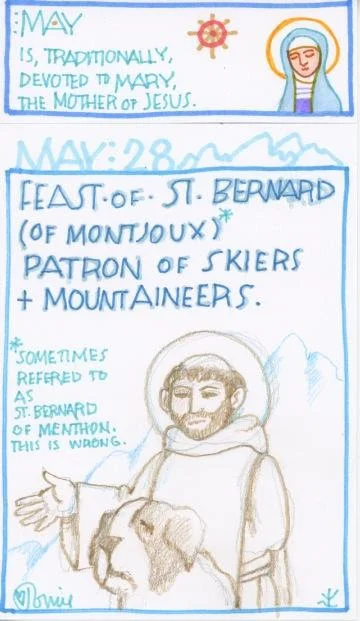 MAY
IS, TRADITIONALLY,
DEVOTED TO MARY,
THE MOTHER OF JESUS.
MAY:28
FEAST·OF· ST. BERNARD
(OF MONTJOUX)*
PATRON OF SKIERS
+ MOUNTAINEERS.
*SOMETIMES
REFERED TO
AS
ST. BERNARD
OF MENTHON.
THIS IS WRONG.